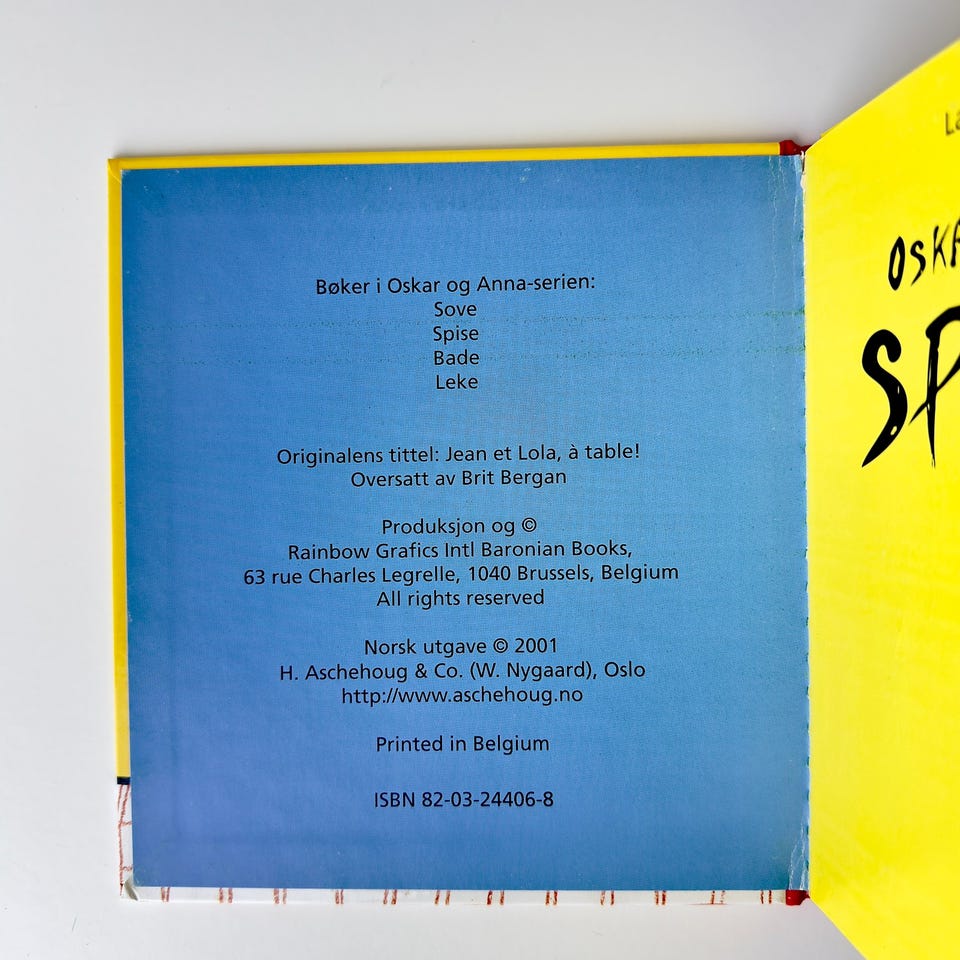 Bøker i Oskar og Anna-serien:
Sove
Spise
Bade
Leke
Originalens tittel: Jean et Lola, à table!
Oversatt av Brit Bergan
Produksjon og ©
Rainbow Grafics Intl Baronian Books,
63 rue Charles Legrelle, 1040 Brussels, Belgium
All rights reserved
Norsk utgave © 2001
H. Aschehoug & Co. (W. Nygaard), Oslo
http://www.aschehoug.no
Printed in Belgium
ISBN 82-03-24406-8